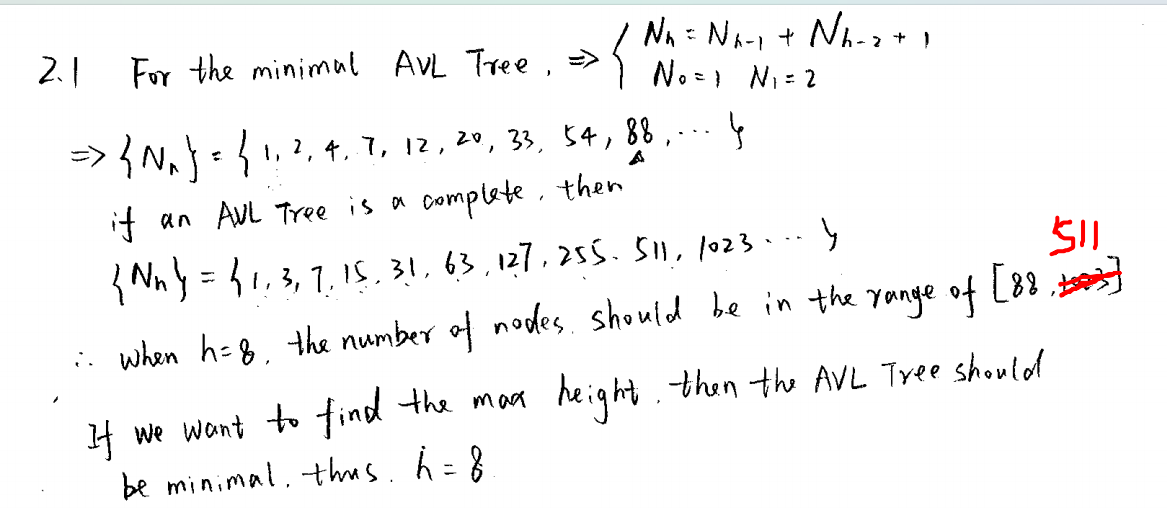 2.1 For the minimal AVL Tree, ⇒ { Nh = Nh-1 + Nh-2 + 1
N0 = 1 N1 = 2
⇒ {Nn} = { 1, 2, 4, 7, 12, 20, 33, 54, 88, ... }
if an AVL Tree is a complete, then
{Nn} = { 1, 3, 7, 15, 31, 63, 127, 255. 511, 1023 ... }
511
∴ when h=8, the number of nodes. should be in the range of [88, 1023]
If we want to find the max height, then the AVL Tree should
be minimal. thus. h = 8